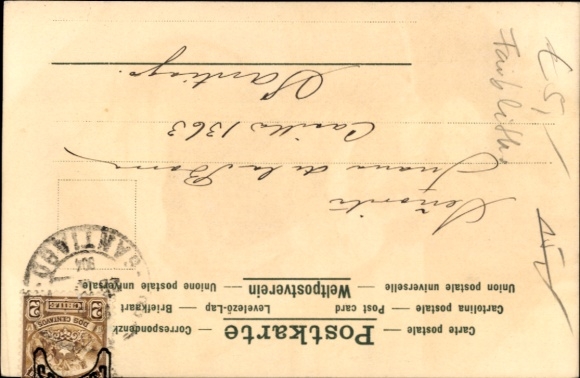 Postkarte
Carte postale — Correspondenzk
Cartolina postale — Post card — Levelező-Lap — Briefkaart
Union postale universelle — Weltpostverein — Unione postale universale
Señorita
Juana de la Barra
Casilla 1363
Santiago.
SANTIAGO
904
2
CHILE
2
DOS CENTAVOS
Farblitho
5,-